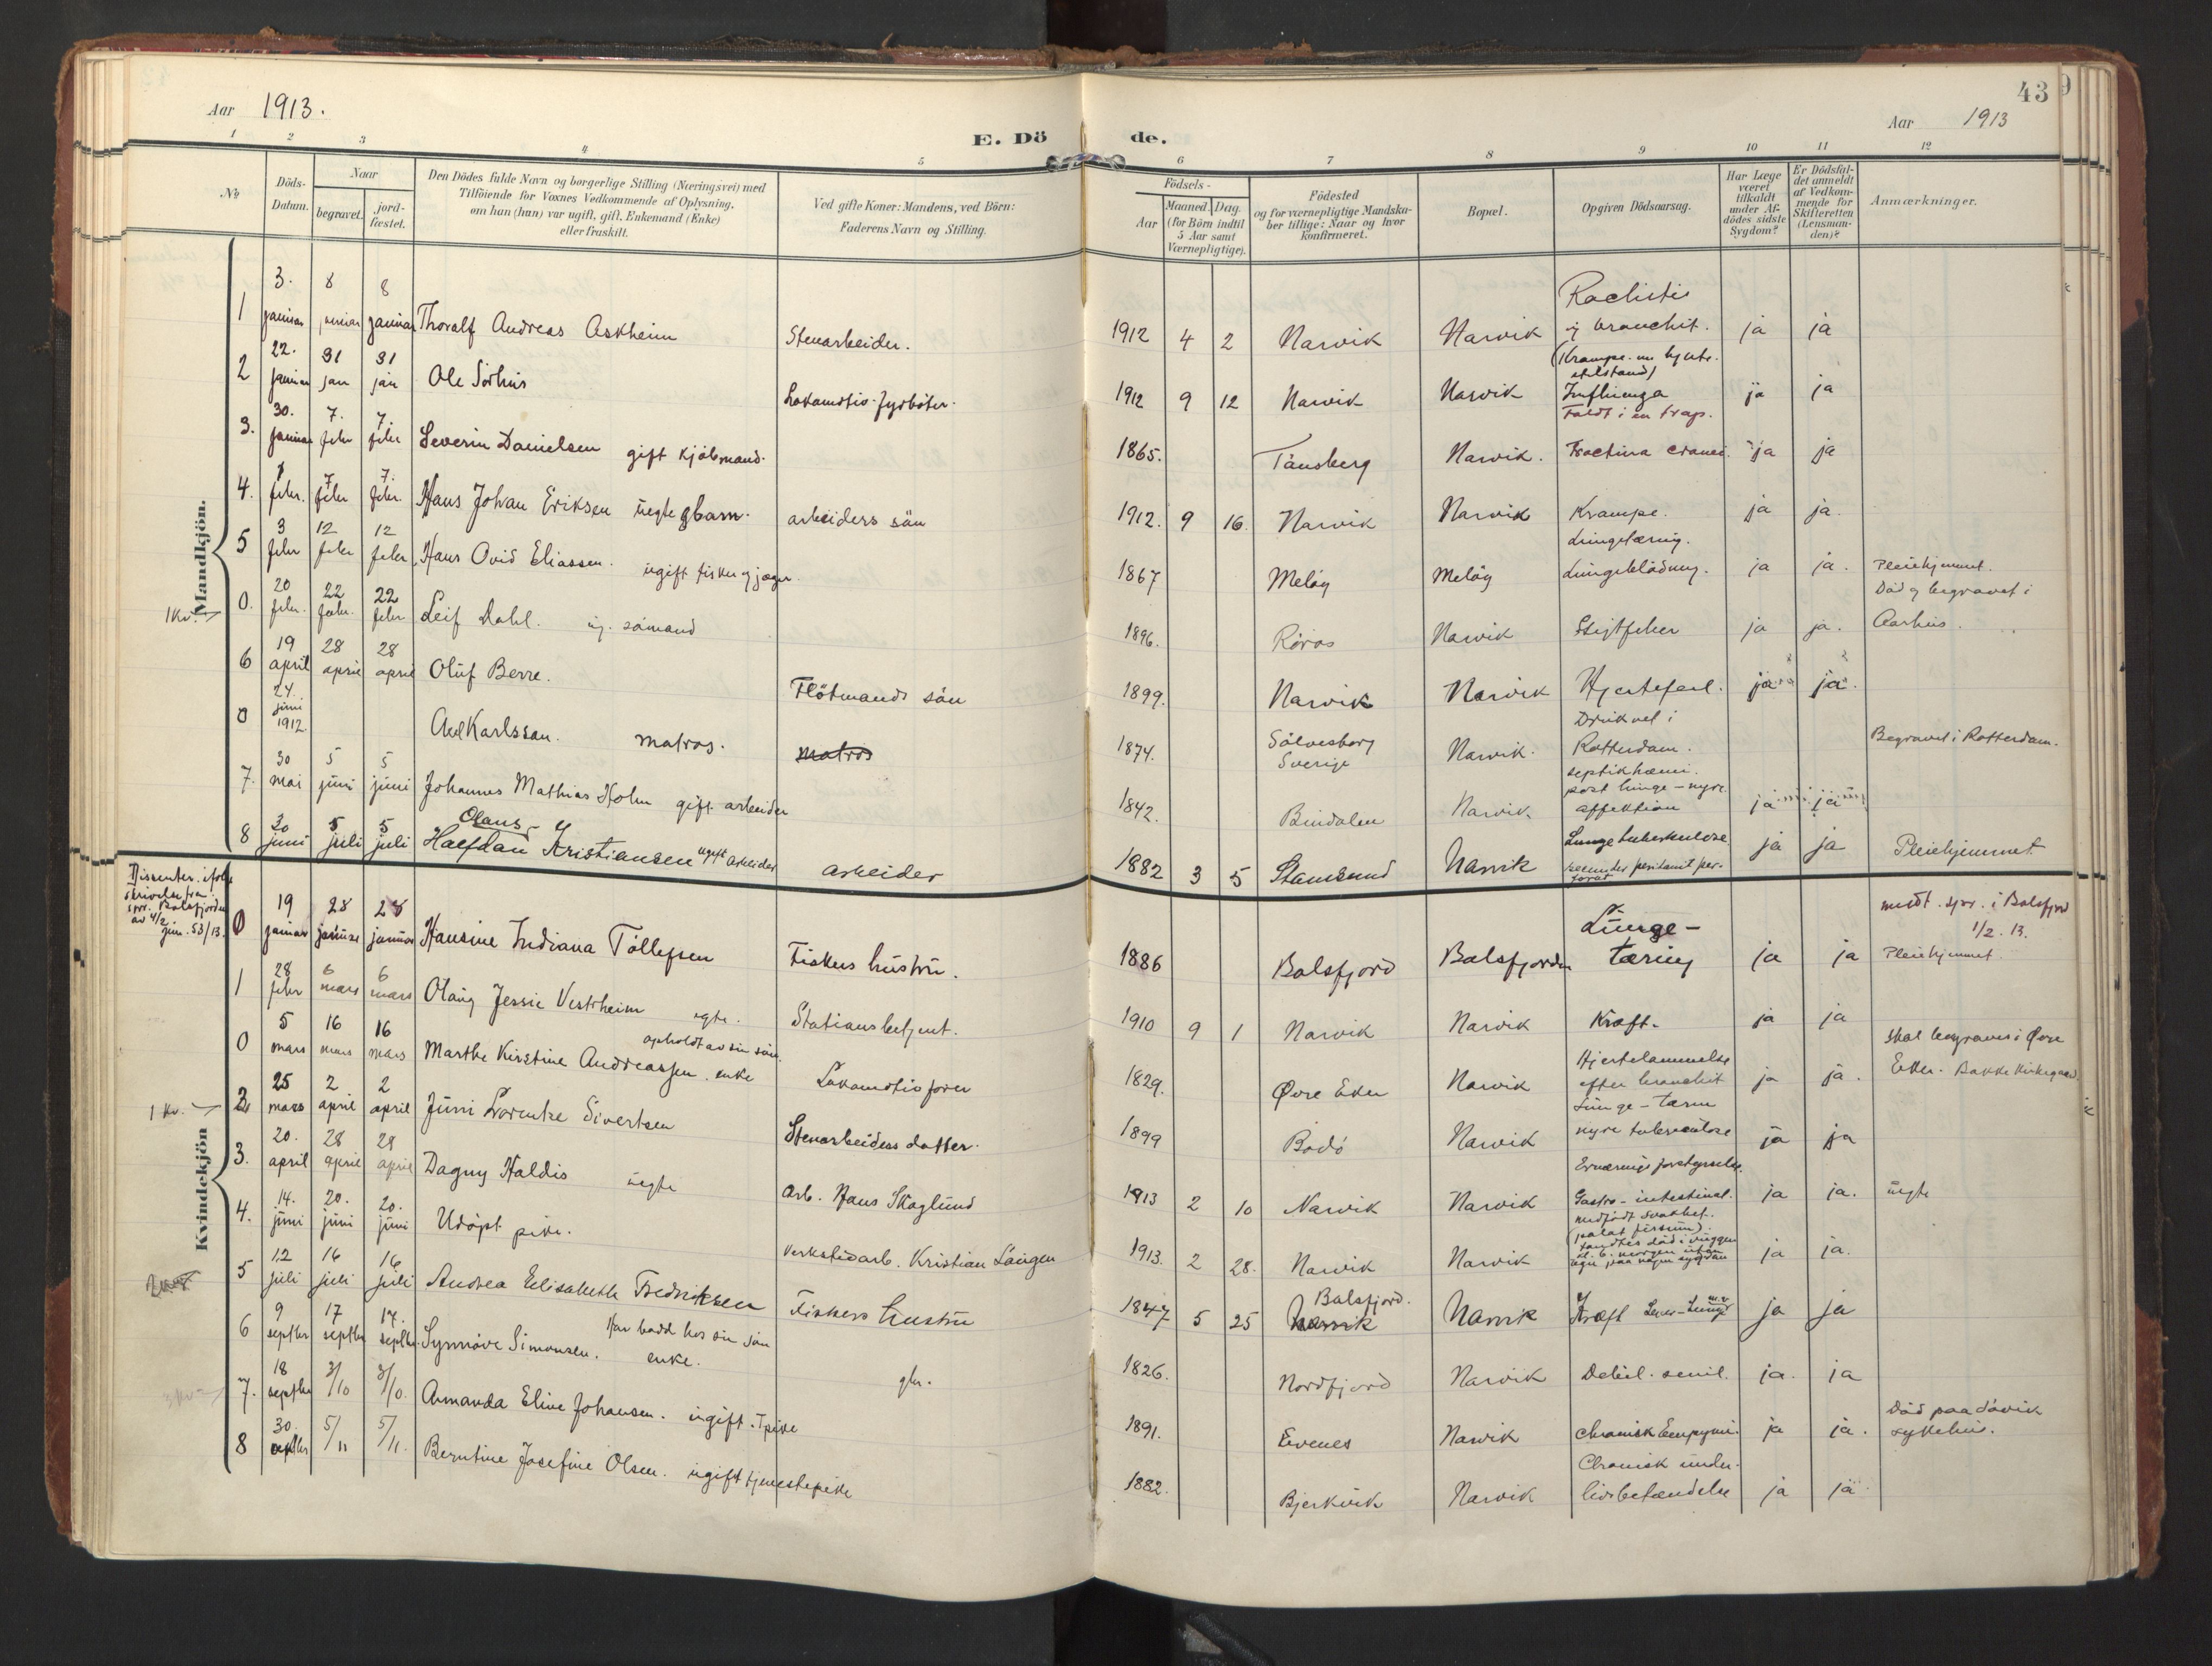 43
Aar 1913.
E. Dö de.
Aar 1913
1 2 3 4 5 6 7 8 9 10 11 12
No
Döds-Datum.
Naar
begravet.
jord-fæstet.
Den Dödes fulde Navn og borgerlige Stilling (Næringsvei) med
Tilföiende for Voxnes Vedkommende af Oplysning,
om han (hun) var ugift, gift, Enkemand (Enke)
eller fraskilt.
Ved gifte Koner: Mandens, ved Börn:
Faderens Navn og Stilling.
Födsels-
Aar
Maaned. Dag.
(for Börn indtil
5 Aar samt
Værnepligtige).
Födested
og for værnepligtige Mandska-
ber tillige: Naar og hvor
konfirmeret.
Bopæl.
Opgiven Dödsaarsag.
Har Læge
været
tilkaldt
under Af-
dödes sidste
Sygdom?
Er Dödsfal-
det anmeldt
af Vedkom-
mende for
Skifteretten
(Lensman-
den)?
Anmærkninger.
Mandkjön.
1 3. januar 8 januar 8 januar Thoralf Andreas Askheim Stenarbeider. 1912 4 2 Narvik Narvik Rachitis og bronchit. (Krampe. ja ja
2 22. januar 31 jan 31 jan Ole Sörhus Lokomotiv-fyrböter. 1912 9 12 Narvik Narvik Influenza ja ja
3. 30. januar 7. febr 7. febr Severin Danielsen gift kjöbmand. 1865. Tönsberg Narvik. Faldt i en trap. Fractura cranii. ja ja
4. 1 febr. 7 febr 7. febr. Hans Johan Eriksen uegte barn. arbeiders sön 1912. 9 16. Narvik Narvik Krampe. ja ja.
5 3 febr 12 febr 12 febr Hans Ovid Eliassen. ugift fisker og jæger. 1867 Melöy Melöy Lungetæring. Lungeblödning. ja ja. Pleiehjemmet.
1 Kv.
0. 20 febr. 22 febr. 22 febr Leif Dahl. ug. sömand 1896. Röros Narvik ja ja. Död og begravet i Aarhus.
6 19 april 28 april 28 april Oluf Berre. Flötmands sön 1899. Narvik Narvik Hjertefeil. ja ja.
0 24. juni 1912 Axel Karlsson. matros. matros 1874. Sölvesborg Sverige Narvik. Druknet i Rotterdam. Begravet i Rotterdam.
7. 30 mai 5 juni 5 juni Johannes Mathias Holm gift. arbeider 1842. Bindalen Narvik. septikhæmi. post lunge-nyre affektion ja ja
8 30 juni 5 juli 5 juli Olaus Halfdan Kristiansen ugift arbeider arbeider 1882 3 5 Stamsund Narvik Lungetuberkulose. secundær peritonit per- ja ja Pleiehjemmet
Kvindekjön
Dissenter. ifölge skrivelse fra spr. Balsfjorden av 4/2 jnr. 53/13.
0 19 januar 28 januar 28 januar Hansine Indiana Tollefsen Fiskers hustru. 1886 Balsfjord Balsfjorden Lunge-tæring ja ja medt. spr. i Balsfjord 1/2. 13. Pleiehjemmet.
1 28 febr 6 mars 6 mars Olaug Jessie Vestrheim egte. Stationsbetjent. 1910 9 1 Narvik Narvik Kræft. ja ja
0 5 mars 16 mars 16 mars Marthe Kirstine Andreassen. enke opholdt av sin sön. Lokomotivförer 1829. Øvre Eker Narvik Hjertelammelse efter bronchit ja ja. Skal begraves i Øvre Eker. Bakke Kirkegaard.
1 Kv.
2. 25 mars 2 april 2 april Juni Lorentze Sivertsen Stenarbeiders datter. 1899 Bodö Narvik Lunge- nyre tuberculose ja ja
3. 20. april 28 april 28 april Dagny Haldis uegte Arb. Hans Skoglund 1913 2 10 Narvik Narvik Ernærings forstyrrelse. Gastro-intestinal. ja ja. uegte
4. 14. juni 20. juni 20. juni Udöpt pike. Verkstedarb. Kristian Langen 1913. 2 28. Narvik Narvik medfödt svakhet. (palat fissum). ja ja.
5 12 juli 16 juli 16 juli Andrea Elisabeth Fredriksen Fiskers hustru 1847 5 25 Balsfjord. Narvik Narvik Kræft Lever- ja ja
6 9 septbr 17 septbr 17. septbr Synnöve Simonsen. Har bodd hos sin sön enke. 1826. Nordfjord Narvik Debil. senil. ja. ja
7. 18 septbr 3/10 3/10. Amanda Eline Johansen. ugift. Tpike 1891. Evenes Narvik chronisk Empyem. ja ja. Död paa sykehus.
8 30. 5/11 5/11. Berntine Josefine Olsen. ugift tjenestepike 1882. Bjerkvik Narvik Chronisk under-livsbetændelse ja ja